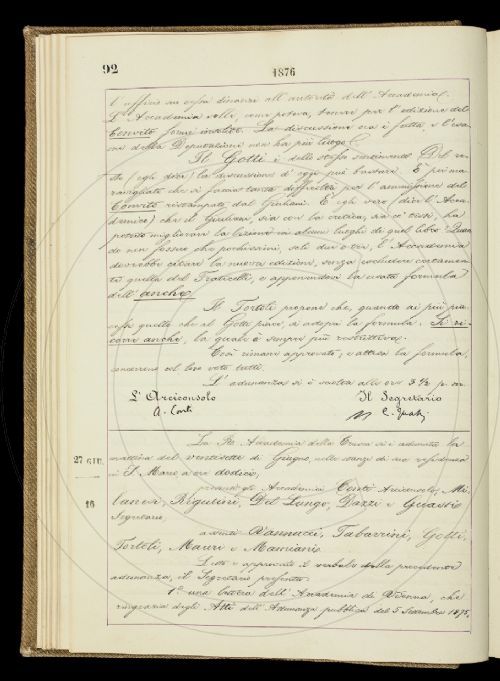 92
1876
l'ufficio su essa dinanzi all'autorità dell'Accademia.
L'Accademia volle, come poteva, tenere per l'edizione del
Convito forme insolite. La discussione ora è fatta, e l'esa
me della Deputazione non ha più luogo.
Il Gotti è dello stesso sentimento. Del re
sto (egli dice) la discussione d'oggi può bastare. E poi ma
ravigliato che si faccia tanta difficoltà per l'ammissione del
Convito ristampato dal Giuliani. È egli vero, (dice l'Acca
demico) che il Giuliani, sia con la critica, sia co' testi, ha
potuto migliorare la lezione in alcuni luoghi di quel libro? Quan
do non fossero che pochissimi, soli due o tre, l'Accademia
dovrebbe citare la nuova edizione, senza escludere certamen
te quella del Fraticelli, e apponendovi la usata formula
dell'anche.
Il Tortoli propone che, quando ai più pia
cesse quello che al Gotti piace, si adopri la formula: Si ri
corre anche, la quale è sempre più restrittiva.
Così rimane approvato; e attesa la formula,
concorrono col loro voto tutti.
L'adunanza si è sciolta alle ore 3 1/2 p. m.
L'Arciconsolo Il Segretario
A. Conti C. Guasti
27 GIU.
16
La R. Accademia della Crusca si è adunata la
mattina del ventisette di Giugno, nelle stanze di sua residenza
in S. Marco, a ore dodici,
presenti gli Accademici Conti Arciconsolo, Mi
lanesi, Rigutini, Del Lungo, Dazzi e Guasti
Segretario,
assenti Vannucci, Tabarrini, Gotti,
Tortoli, Mauri e Mamiani.
Letto e approvato il verbale della precedente
adunanza, il Segretario presenta:
1º una lettera dell'Accademia di Vienna, che
ringrazia degli Atti dell'Adunanza pubblica del 5 Settembre 1875,